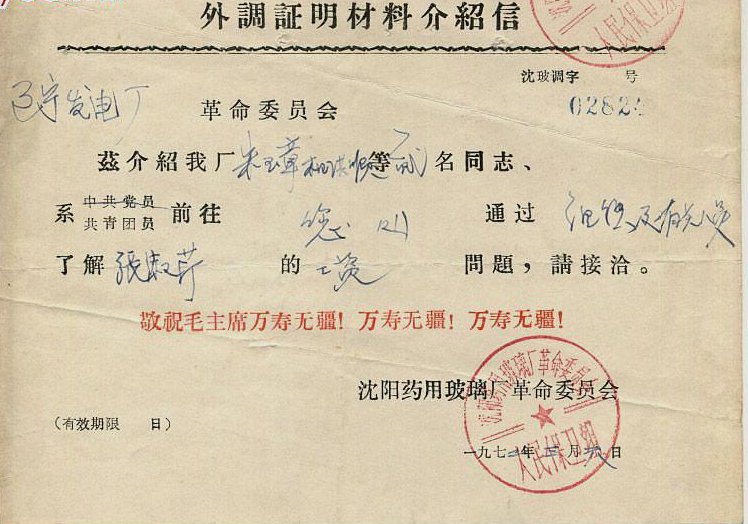 外調証明材料介紹信
沈玻调字 号
02824
辽宁发电厂 革命委员会
茲介紹我厂朱玉章 等 弍 名同志、
系 中共党员 共青团员 前往 您叫 通过 组织及有关人员
了解 張淑芹 的 工资 問題，請接洽。
敬祝毛主席万寿无疆！万寿无疆！万寿无疆！
沈阳药用玻璃厂革命委员会
（有效期限 日）
一九七 年三月 日
沈阳药用玻璃厂革命委员会
人民保卫组
人民保卫组